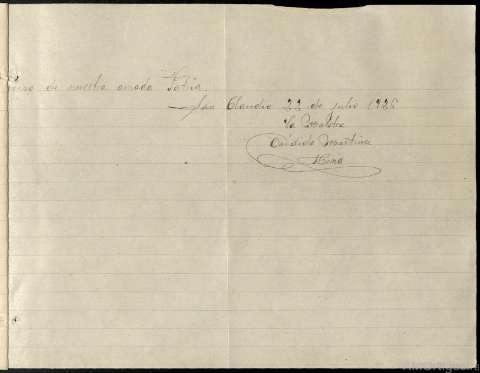 de nuestra amada Patria.
San Claudio 22 de julio 1926
La Maestra
Cándida Martínez